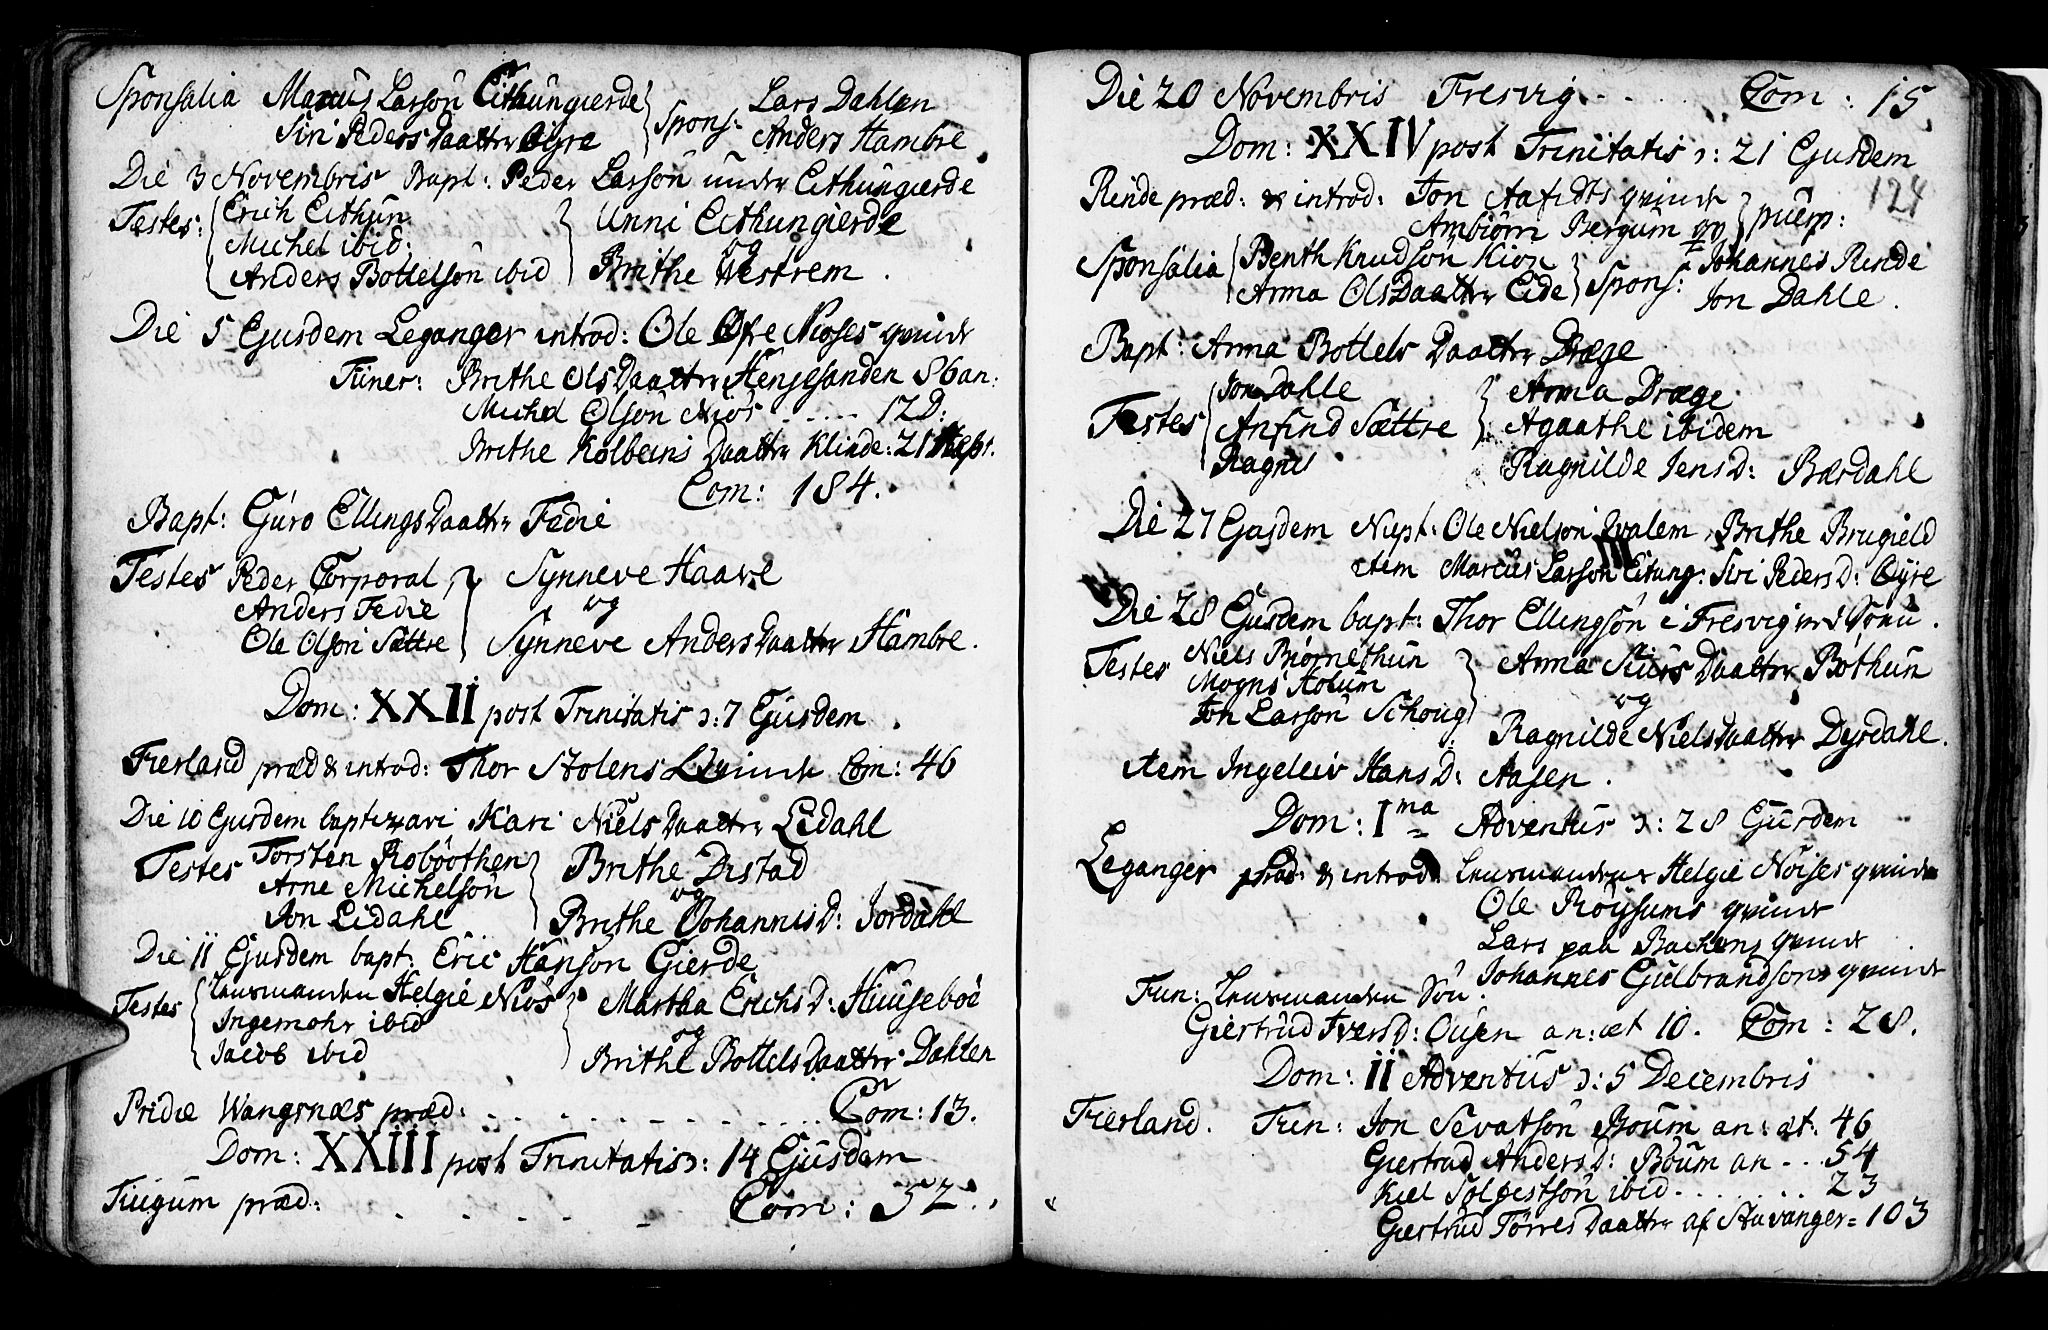 Sponsalia Marcus Larsøn Eithungierde } Spons: Lars Dahlen
Siri PedersDaatter Øyre Anders Hambre
Die 3 Novembris Bapt: Peder Larsøn under Eithungierde
Testes: Erich Eithun } Unni Eithungierde
Michel ibid: og
Anders Bottelsøn ibid Brithe Westrem.
Die 5 Ejusdem Leganger introd: Ole Øfre Nioses qvinde
Funer: Brithe OlsDaatter Henjesanden 86 an:
Michel Olsøn Niøs .... 12 D:
Brithe KolbeinsDaatter Klinde: 21 Sept.
Com: 184.
Bapt: Guro EllingsDaatter Fedie
Testes Peder Corporal } Synneve Haave
Anders Fedie og
Ole Olsøn Sættre Synneve AndersDaatter Hambre.
Dom: XXII post Trinitatis ɔ: 7 Ejusdem.
Fierland præd & introd: Thor Stolens Qvinde Com: 46
Die 10 Ejusdem baptizavi Kari NielsDaatter Eidahl
Testes Torsten Robøothen } Brithe Distad
Arne Michelsøn og
Jon Eidahl Brithe JohannisD: Jordahl
Die 11 Ejusdem bapt: Eric Hansøn Gierde
Testes Lensmanden Helgie Niøs } Martha ErichsD: Huusebøe
Ingemohr ibid og
Jacob ibid Brithe BottelsDaatter Dahlen
Pridie Wangsnæs præd: . . . . . . . . . Com: 13.
Dom: XXIII post Trinitatis ɔ: 14 Ejusdem
Fiugum præd: . . . . . Com: 52.
Die 20 Novembris Fresvig . . . Com: 15.
Dom: XXIV post Trinitatis ɔ: 21 Ejusdem
124
Rinde præd: & introd: Jon qvinde } puerp:
Ambiørn Bergum qv
Sponsalia Benth Knudsøn Kion } Spons: Johannes Rinde
Anna OlsDaatter Eide Jon Dahle.
Bapt: Anna BottelsDaatter Dræge
Testes Jon Dahle } Anna Dræge
Anfind Sættre Agaathe ibidem
Ragnild JensD: Bærdahl
Die 27 Ejusdem Nupt: Ole Nielsøn Qvalem, Brithe Brugield
item Marcus Larsøn Eitung: Siri PedersD: Øyre
Die 28 Ejusdem bapt: Thor Ellingsøn i Fresvig
Testes Niels Biørnethun } Anna SiursDaatter Bøthun
Mogns Holum og
Jon Larsøn Schoug Ragnilde NielsDaatter Dyrdahl.
item Ingeleiv HansD: Aasen.
Dom: I ma Adventus ɔ: 28 Ejusdem
Leganger præd: & introd: Lensmanden Helgie Nøises qvinde
Ole Røysums qvinde
Lars paa Backens qvinde
Johannes Gulbrandsøns qvinde
Fun: Lensmanden Søn.
Giertrud IversD: Ousen an: æt 10. Com: 28.
Dom: II Adventus ɔ: 5 Decembris
Fierland. Fun: Jon Sevatsøn Bøum an: æt: 46
Giertrud AndersD: Bøum an .. 54
Kiel Solgestsøn ibid. . . . . . 23
Giertrud TorresDaatter af Stavanger = 103